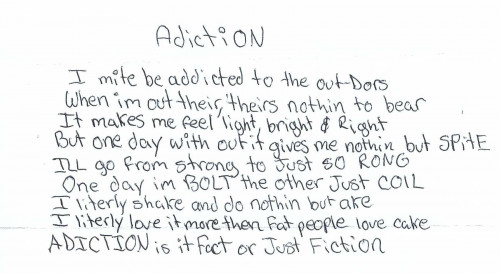 ADiCtiON
I mite be addicted to the out-Dors
When im out their, theirs nothin to bear
It makes me feel light, bright & Right
But one day with out it gives me nothin but SPitE
ILL go from strong to Just SO RONG
One day im BOLT the other Just COIL
I literly shake and do nothin but ake
I literly love it more then Fat people love cake
ADICTION is it Fact or Just Fiction